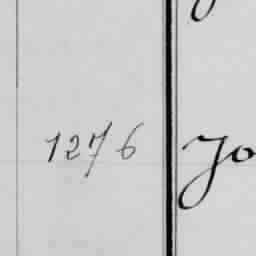 1276 Jo